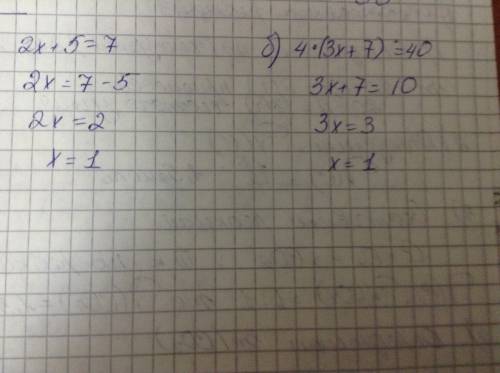 2x+5=7
2x=7-5
2x=2
x=1
б) 4·(3x+7)=40
3x+7=10
3x=3
x=1